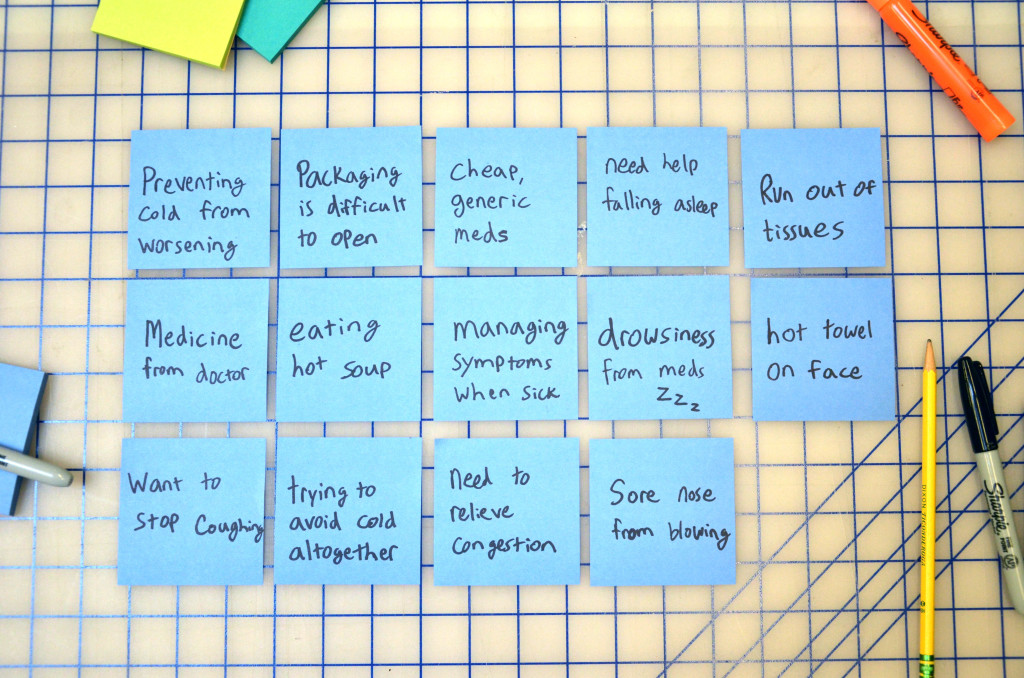 Preventing
cold from
worsening
Packaging
is difficult
to open
Cheap,
generic
meds
need help
falling asleep
Run out of
tissues
Medicine
from doctor
eating
hot soup
managing
symptoms
when sick
drowsiness
from meds
zzz
hot towel
on face
Want to
stop coughing
trying to
avoid cold
altogether
need to
relieve
congestion
Sore nose
from blowing
Sharpie
Sharpie
DIXON